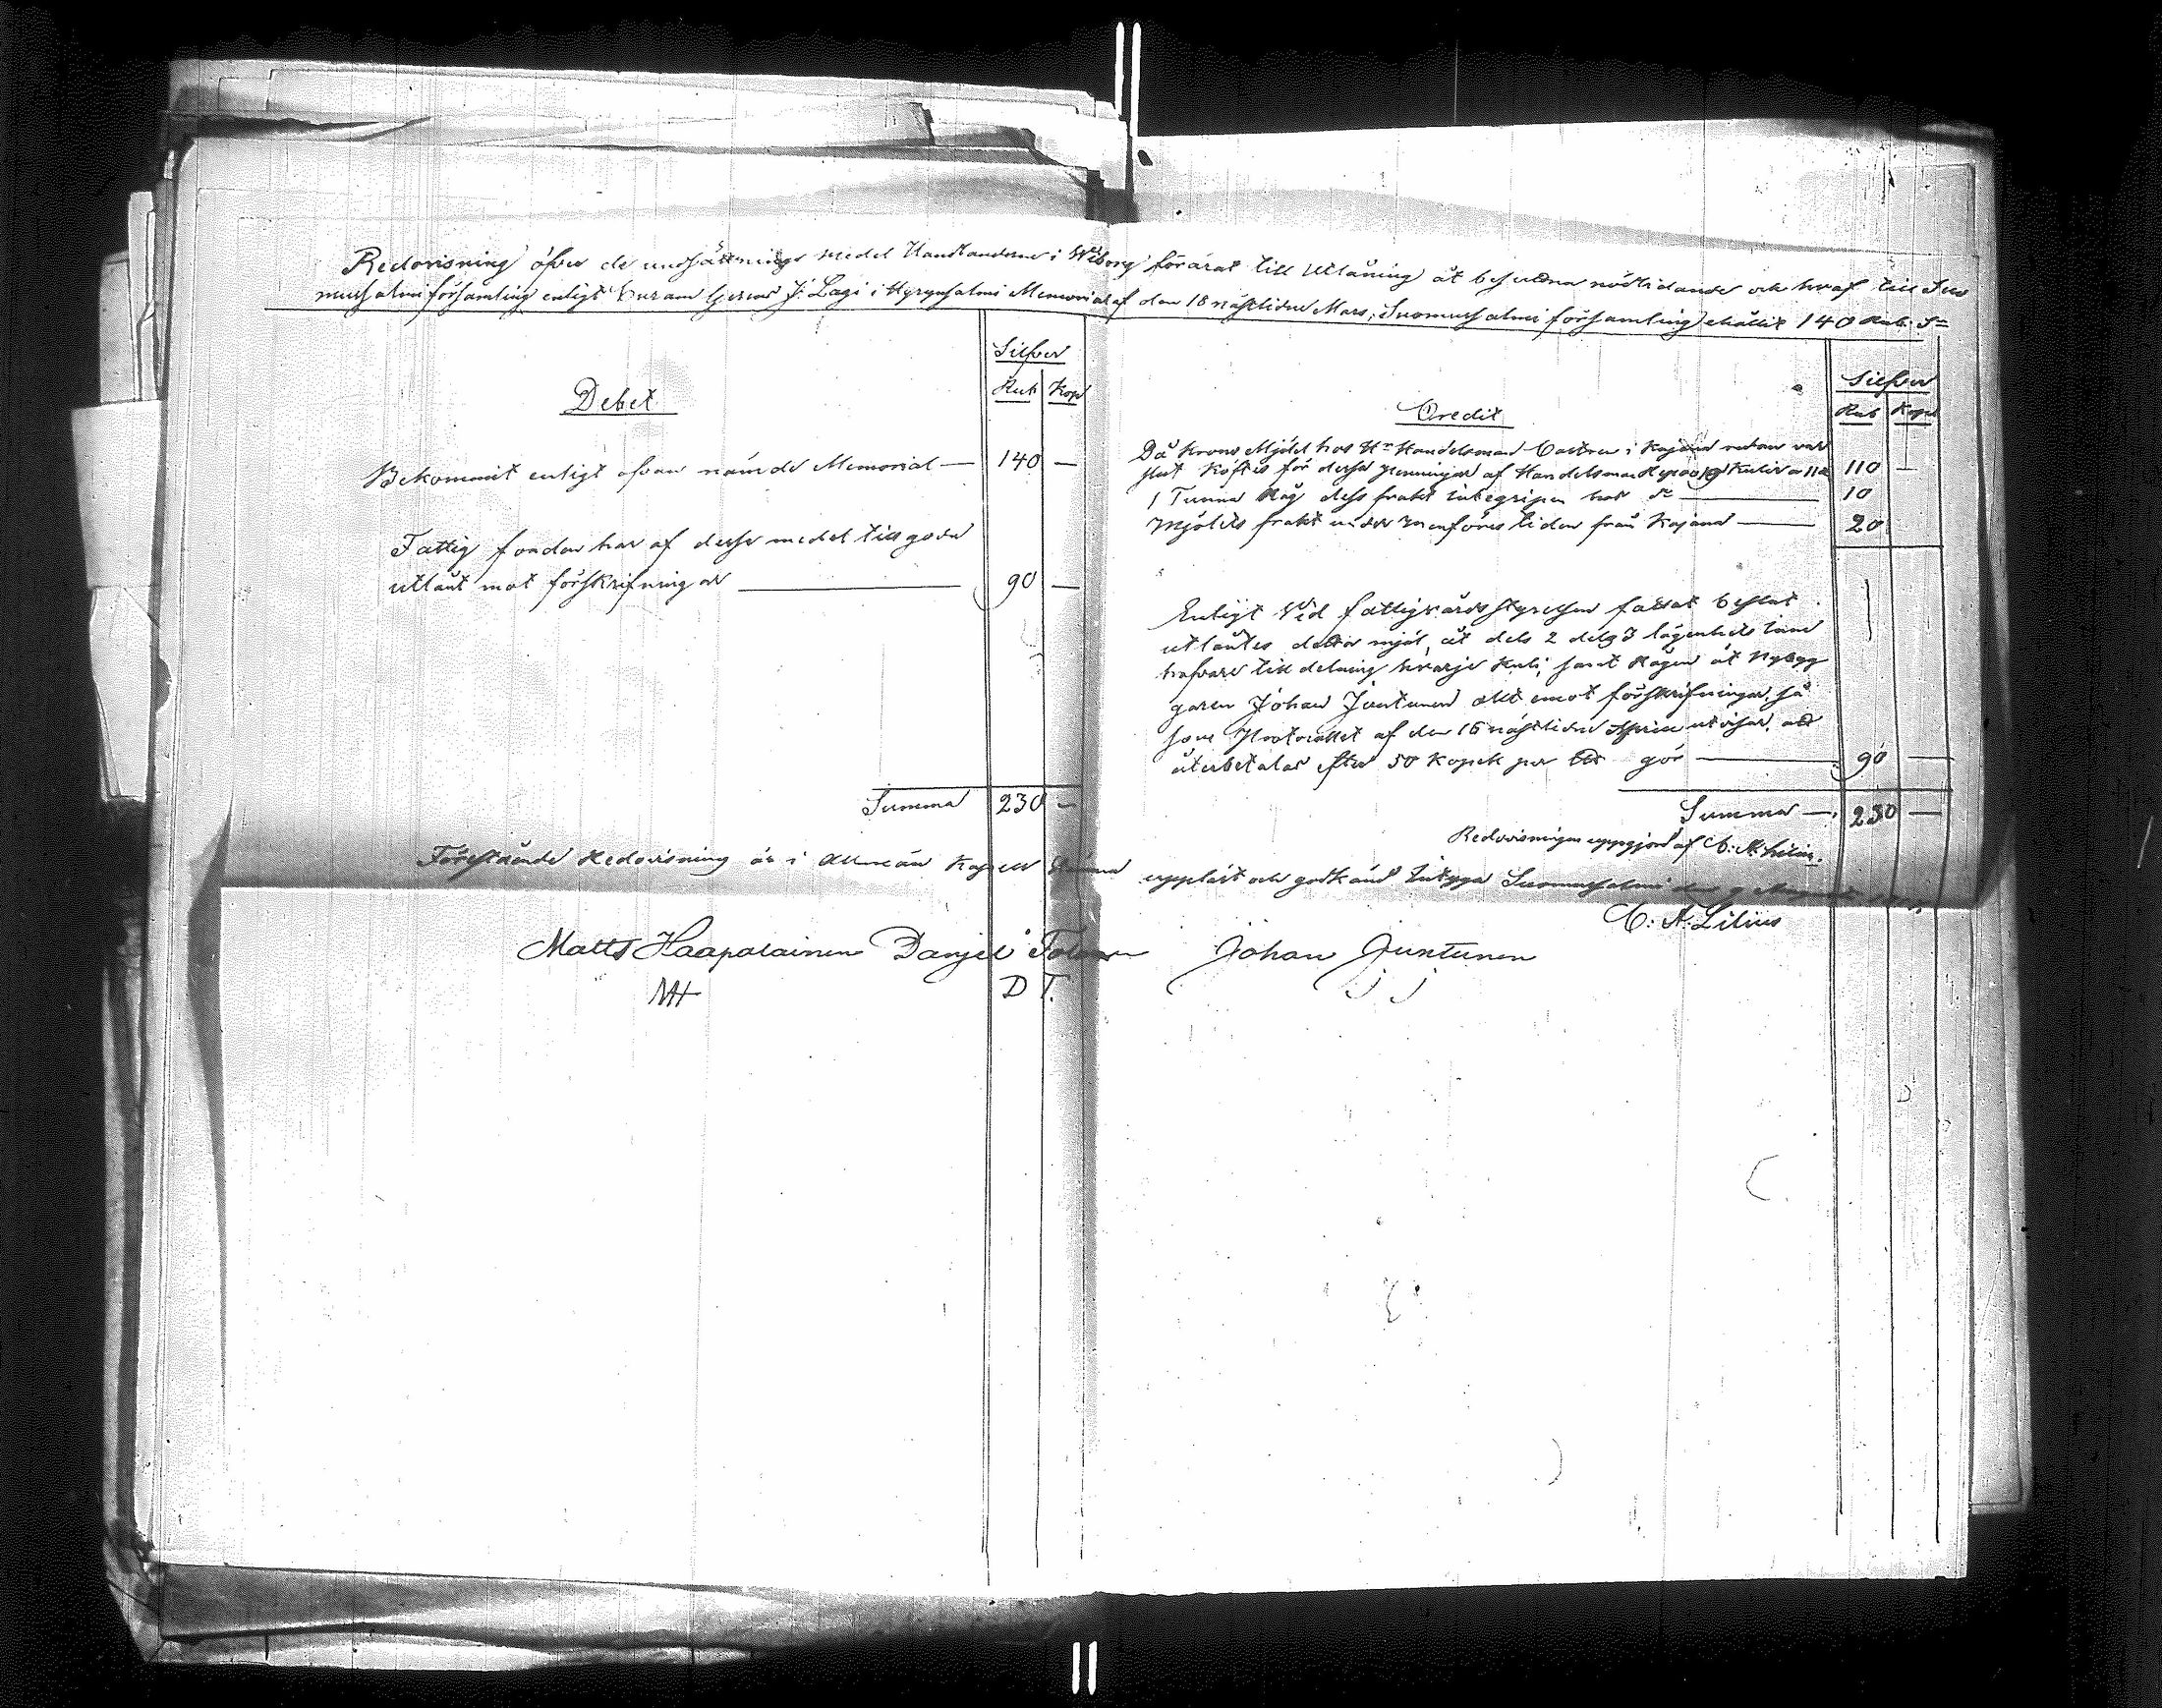 Redovisning öfver de undsättnings medel Handlanderne i Wiborg förärat till utlåning åt behufdna nödlidande och hvaf till Suo
mussalmi församling enligt Curam Gerens J: Lagi i Hyrynsalmi Memorial af den 18 nästlidne Mars, Suomussalmi församling ehållit 140 Rub. Sr
Debet
Silfver
Rub Kop
Bekommit enligt ofvan nämde Memorial — 140 —
Fattig fonden har af desse medel till godo
utlånt mot förskrifningar — 90 —
Summa 230 —
Credit
Silfver
Rub Kop
Då Krono Mjölet hos Hr Handelsman Castren i Kajana redan var
slut köptes för dessa penningar af Handelsman 10 Kulor a 11 110 —
1 Tunna Råg dess frakt inbegripen hos dr — 10
Mjölets frakt under menföres tiden från Kajana — 20
Enligt vid fattigvårds styrelsen fattat beslut
utlåntes detta mjöl, åt dels 2 dels 3 lägenhets inne
hafvare till delning hvarje Kuli, samt Rågen åt Nybyg
garen Johan Juntunen allt emot förskrifningar, så
som Protocollet af den 16 nästlidne April utvisar, att
återbetalas efter 50 Kopek per gör — 90 —
Summa — 230 —
Redovisningen uppgjord af C: A: Lilius.
Förestående Redovisning är i Allmän Kapell Stämma uppläst och godkänd intyga Suomussalmi den 9 August
C: A: Lilius
Matts Haapalainen Danjel Tolonen Johan Juntunen
MH D T. J J